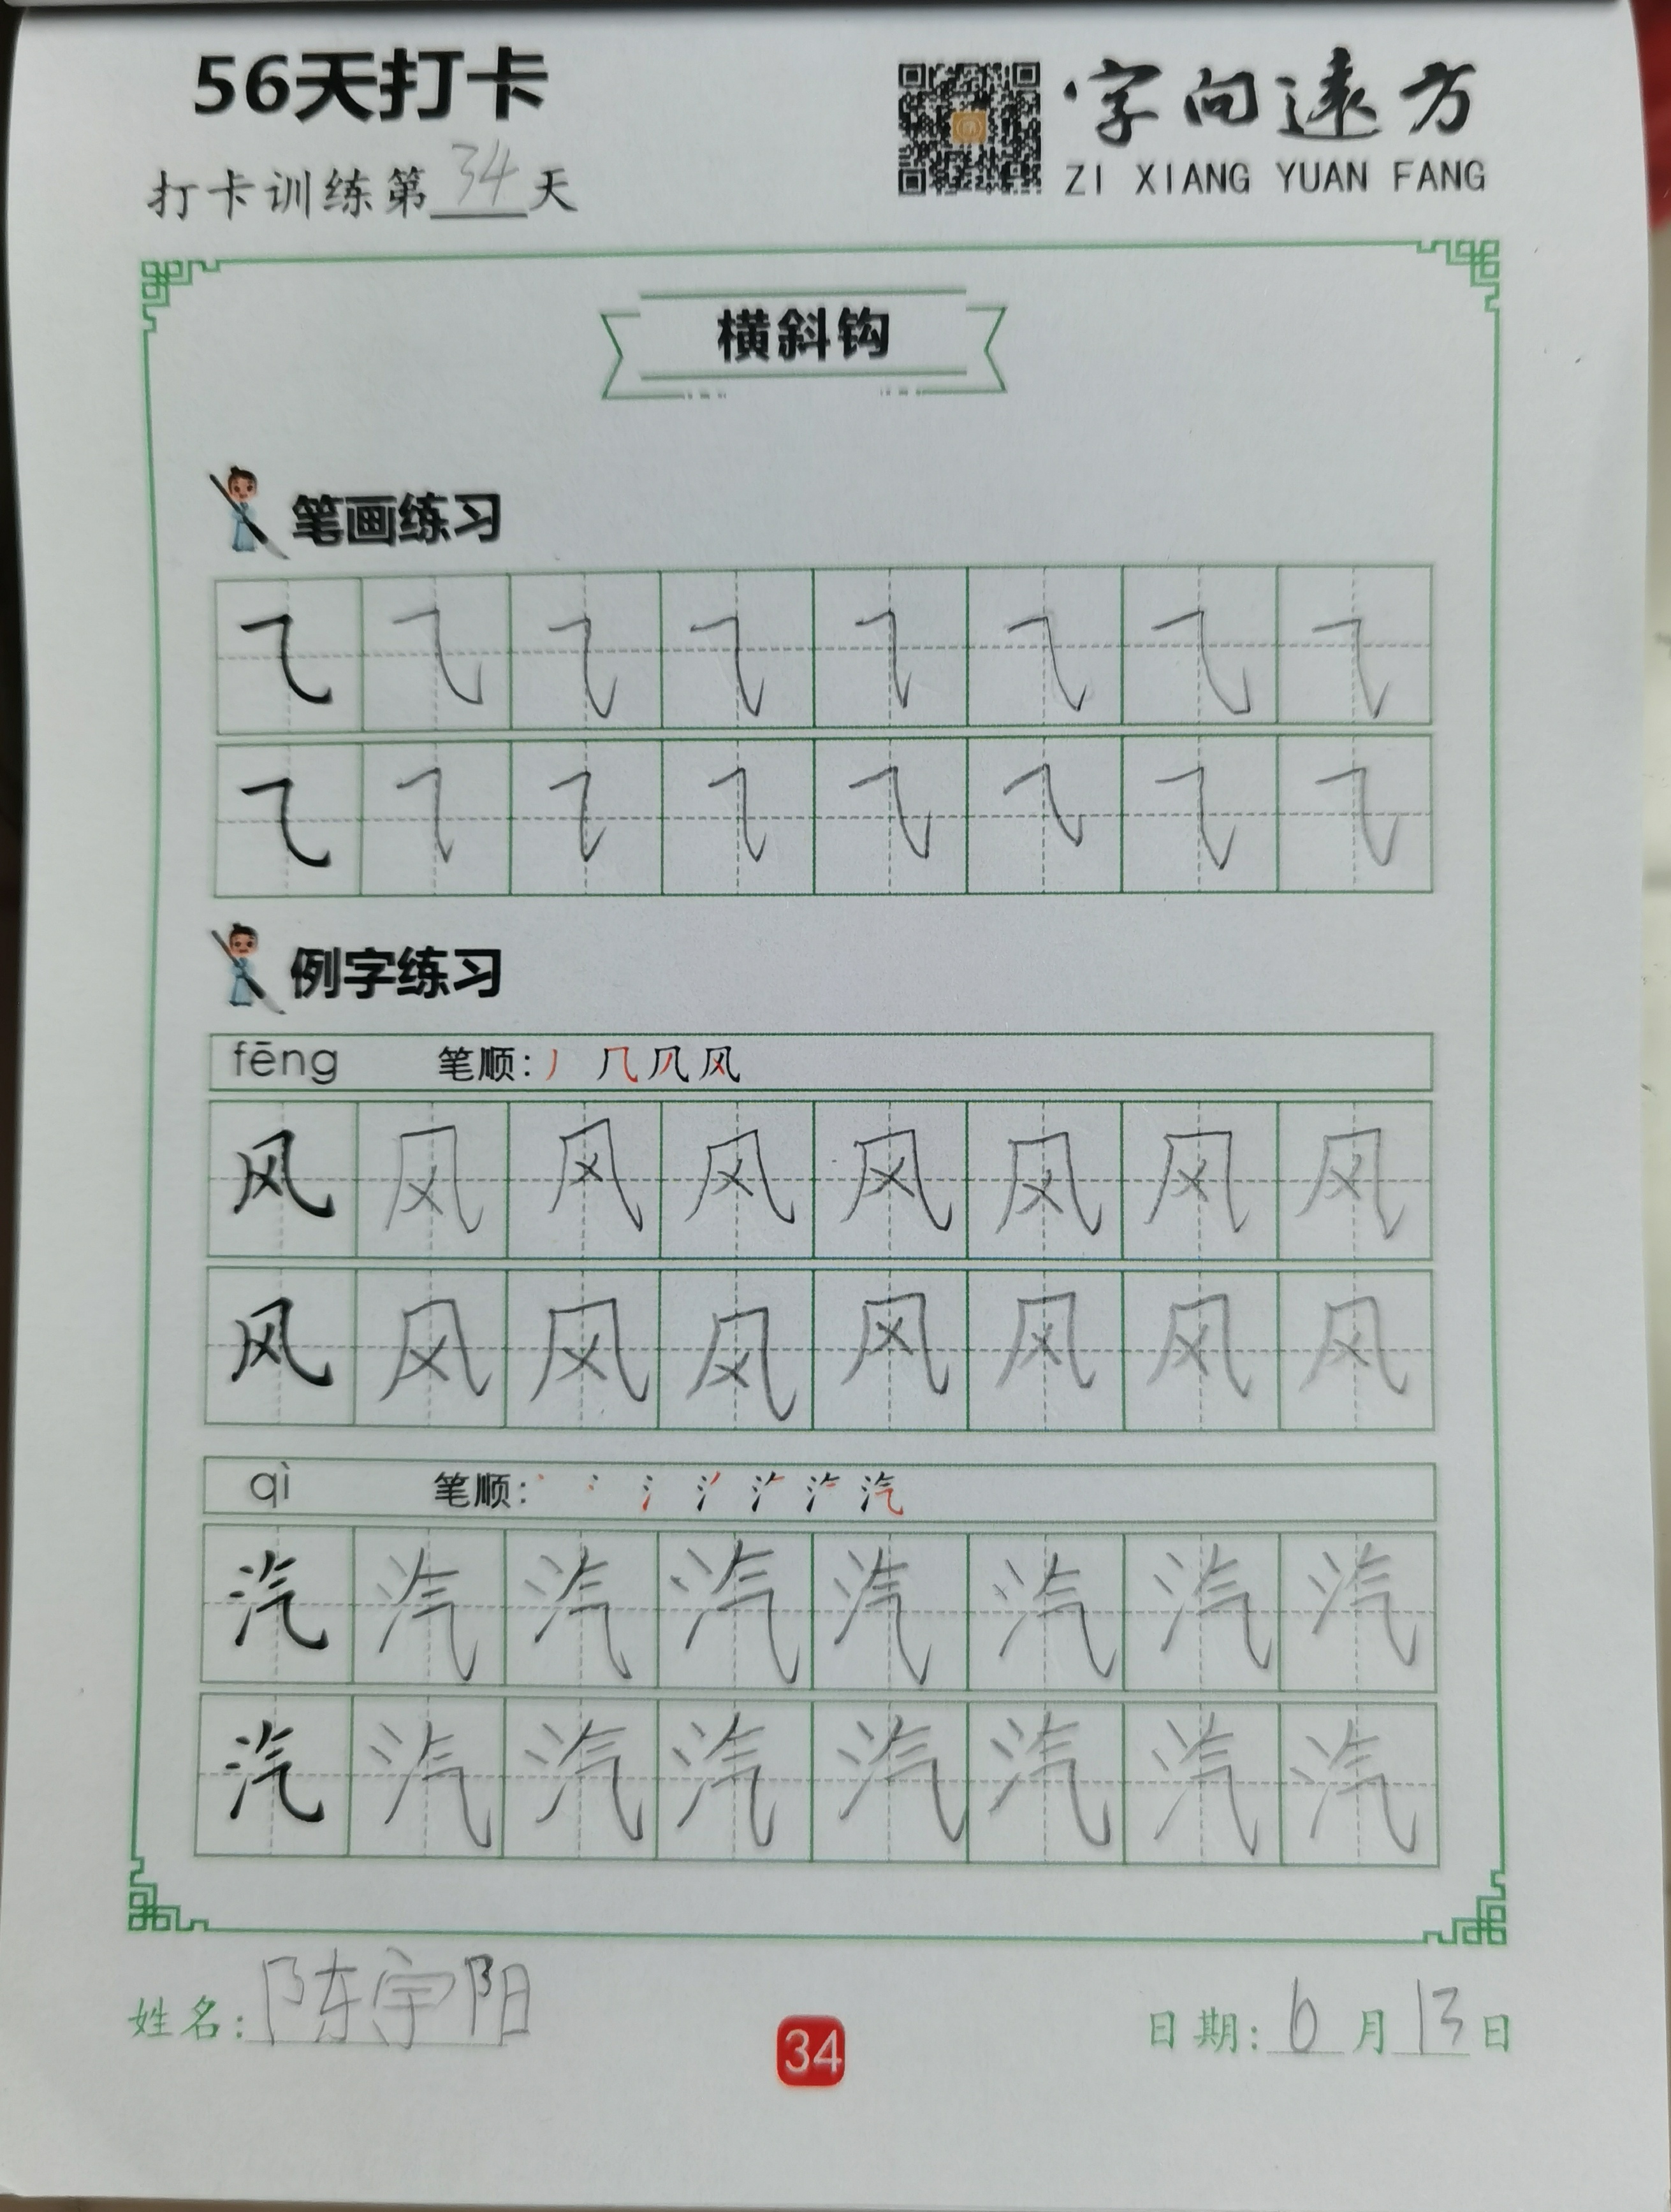 56天打卡
字向遠方
ZI XIANG YUAN FANG
打卡训练第34天
横斜钩
笔画练习
⺄ ⺄ ⺄ ⺄ ⺄ ⺄ ⺄ ⺄
⺄ ⺄ ⺄ ⺄ ⺄ ⺄ ⺄ ⺄
例字练习
fēng 笔顺: 丿 几 风
风 风 风 风 风 风 风 风
风 风 风 风 风 风 风 风
qì 笔顺: 丶 冫 氵 汽
汽 汽 汽 汽 汽 汽 汽 汽
汽 汽 汽 汽 汽 汽 汽 汽
姓名: 陈宇阳
34
日期: 6月13日